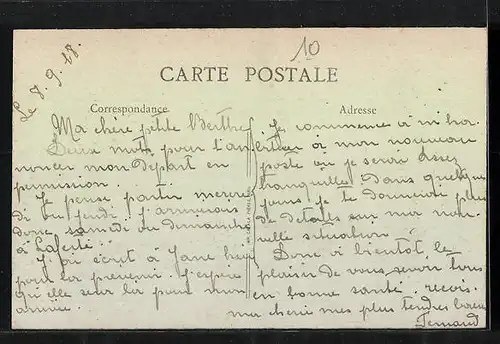 10
Le 8.9.18.
CARTE POSTALE
Correspondance
Adresse
Ma chère petite Berthe
Deux mots pour t'an
noncer mon Depart en
permission.
Je pense partir mercre
di ou jeudi. J'arriverais
donc samedi ou dimanche
à Laferté.
J'ai écrit à Jane hier
pour la prévenir. J'espère
qu'elle sera là pour mon
arrivée.
Je commence à m'ha
bituer à mon nouveau
poste ou je serai assez
tranquille. Dans quelques
jours je te donnerai plus
de details sur ma nou
velle situation.
Donc à bientôt, le
plaisir de vous revoir tous
en bonne santé. reçois
ma cherie mes plus tendres baisers
Fernand